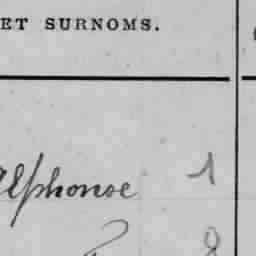 ET SURNOMS.
Alphonse 1
8